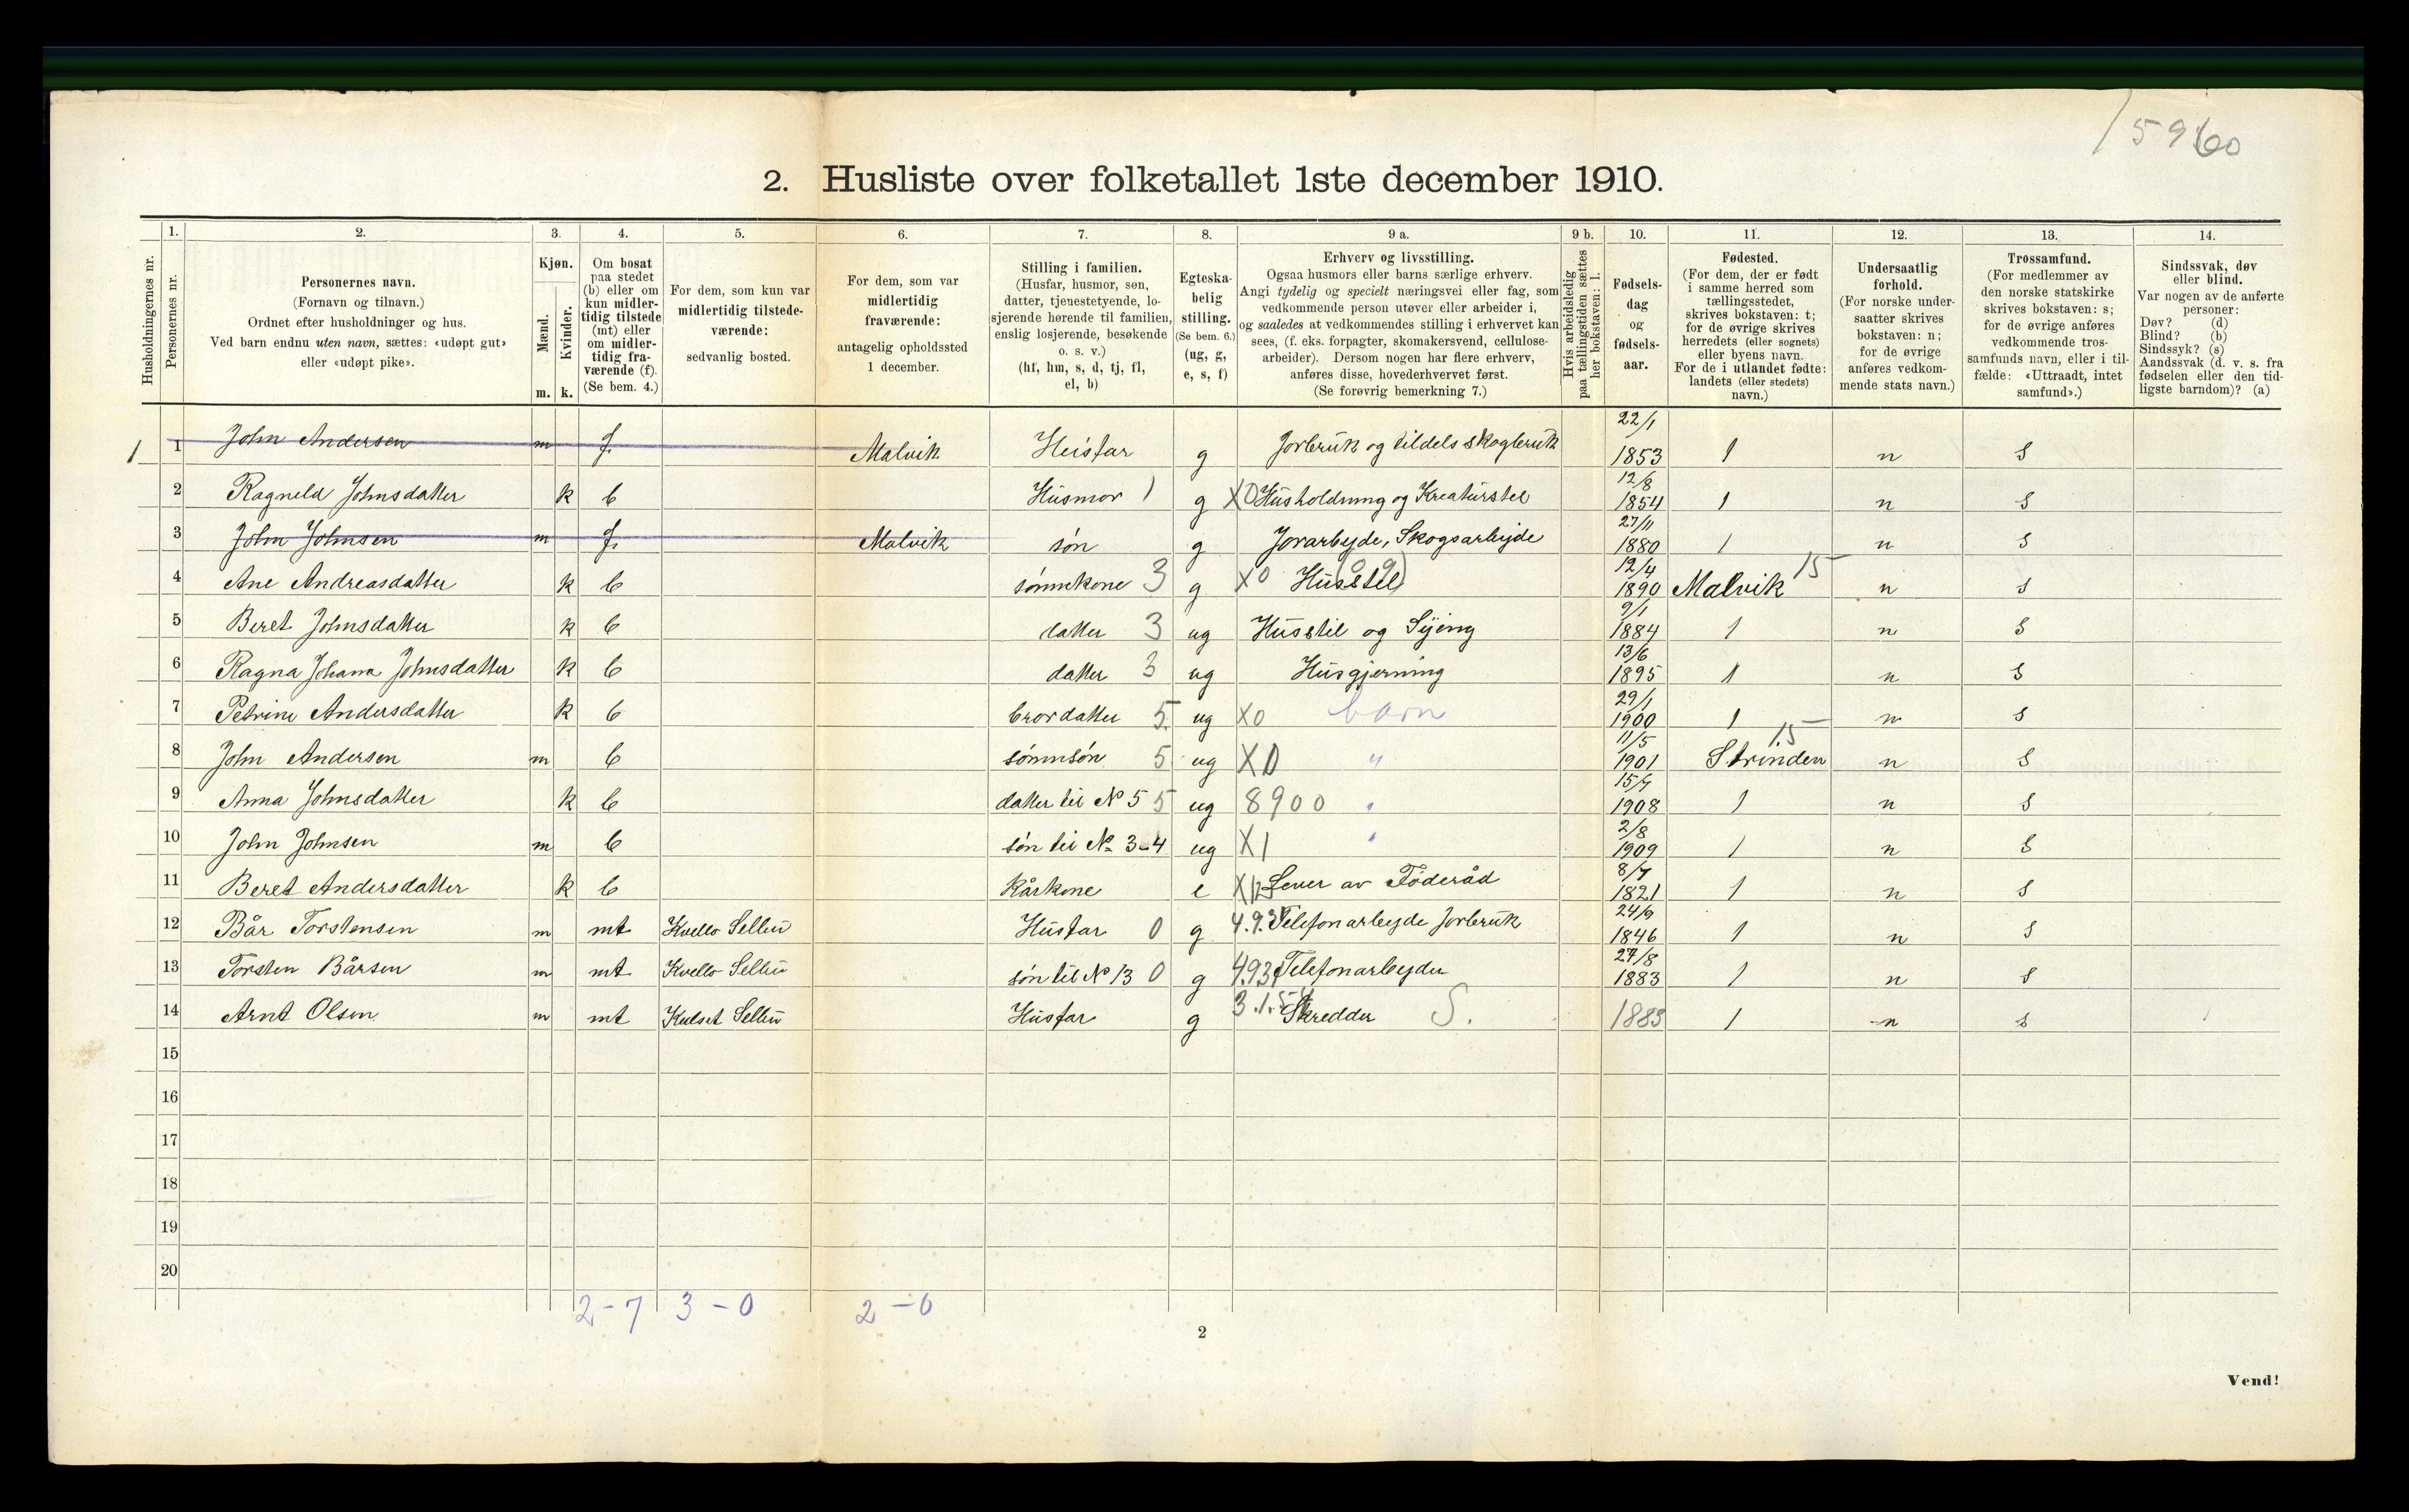 2. Husliste over folketallet 1ste december 1910.
1. 2. 3. 4. 5. 6. 7. 8. 9 a. 9 b. 10. 11. 12. 13. 14.
Husholdningernes nr.
Personernes nr.
Personernes navn.
(Fornavn og tilnavn.)
Ordnet efter husholdninger og hus.
Ved barn endnu uten navn, sættes: «udøpt gut»
eller «udøpt pike».
Kjøn.
Mænd.
Kvinder.
m. k.
Om bosat
paa stedet
(b) eller om
kun midler-
tidig tilstede
(mt) eller
om midler-
tidig fra-
værende (f).
(Se bem. 4.)
For dem, som kun var
midlertidig tilstede-
værende:
sedvanlig bosted.
For dem, som var
midlertidig
fraværende:
antagelig opholdssted
1 december.
Stilling i familien.
(Husfar, husmor, søn,
datter, tjenestetyende, lo-
sjerende hørende til familien,
enslig losjerende, besøkende
o. s. v.)
(hf, hm, s, d, tj, fl,
el, b)
Egteska-
belig
stilling.
(Se bem. 6.)
(ug, g,
e, s, f)
Erhverv og livsstilling.
Ogsaa husmors eller barns særlige erhverv.
Angi tydelig og specielt næringsvei eller fag, som
vedkommende person utøver eller arbeider i,
og saaledes at vedkommendes stilling i erhvervet kan
sees, (f. eks. forpagter, skomakersvend, cellulose-
arbeider). Dersom nogen har flere erhverv,
anføres disse, hovederhvervet først.
(Se forøvrig bemerkning 7.)
Hvis arbeidsledig
paa tællingstiden sættes
her bokstaven: l.
Fødsels-
dag
og
fødsels-
aar.
Fødested.
(For dem, der er født
i samme herred som
tællingsstedet,
skrives bokstaven: t;
for de øvrige skrives
herredets (eller sognets)
eller byens navn.
For de i utlandet fødte:
landets (eller stedets)
navn.)
Undersaatlig
forhold.
(For norske under-
saatter skrives
bokstaven: n;
for de øvrige
anføres vedkom-
mende stats navn.)
Trossamfund.
(For medlemmer av
den norske statskirke
skrives bokstaven: s;
for de øvrige anføres
vedkommende tros-
samfunds navn, eller i til-
fælde: «Uttraadt, intet
samfund».)
Sindssvak, døv
eller blind.
Var nogen av de anførte
personer:
Døv? (d)
Blind? (b)
Sindssyk? (s)
Aandssvak (d. v. s. fra
fødselen eller den tid-
ligste barndom)? (a)
1 1 John Andersen m f. Malvik Husfar g Jorbruk og tildels skogbruk 22/1 1853 t n s
2 Ragneld Johnsdatter k b Husmor 1 g X0 Husholdning og Kreaturstel 12/8 1854 t n s
3 John Johnsen m f. Malvik søn g Jorarbejde, Skogsarbejde 27/11 1880 t n s
4 Ane Andreasdatter k b sønnekone 3 g X0 Husstel 12/4 1890 Malvik 15 n s
5 Beret Johnsdatter k b datter 3 ug Husstel og Sying 9/1 1884 t n s
6 Ragna Johanna Johnsdatter k b datter 3 ug Husgjerning 13/6 1895 t n s
7 Petrine Andersdatter k b brordatter 5 ug X0 barn 29/1 1900 t n s
8 John Andersen m b sønnsøn 5 ug X0 " 11/5 1901 Strinden 15 n s
9 Anna Johnsdatter k b datter til No 5 5 ug 8900 " 15/7 1908 t n s
10 John Johnsen m b søn til No 3-4 ug X1 " 2/8 1909 t n s
11 Beret Andersdatter k b Kårkone e Lever av Föderåd 8/7 1821 t n s
12 Bår Torstensen m mt Kvello Selbu Husfar 0 g Telefonarbejde Jorbruk 24/9 1846 t n s
13 Torsten Bårsen m mt Kvello Selbu søn til No 13 0 g Telefonarbejder 27/8 1883 t n s
14 Arnt Olsen m mt Kulset Selbu Husfar g Skredder S. 1883 t n s
15
16
17
18
19
20
2-7 3-0 2-0
2
Vend!